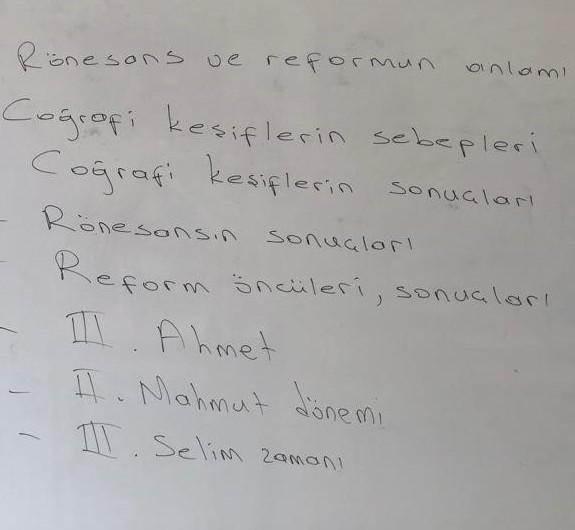 Rönesans ve reformun anlamı
Coğrafi keşiflerin sebepleri
Coğrafi keşiflerin sonuçları
- Rönesansın sonuçları
- Reform öncüleri, sonuçları
- III. Ahmet
- II. Mahmut dönemi
- III. Selim zamanı